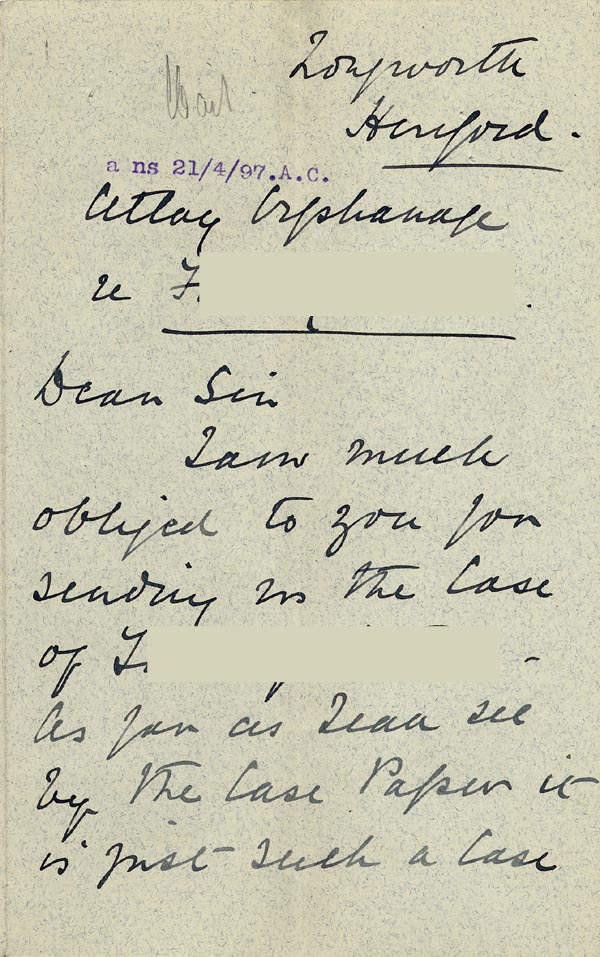 Longworth
Wait
Hereford.
ans 21/4/97.A.C.
Orphanage
re F
Dear Sir
I am much
obliged to you for
sending us the Case
of F
As far as I can see
by the Case Paper it
is just such a Case